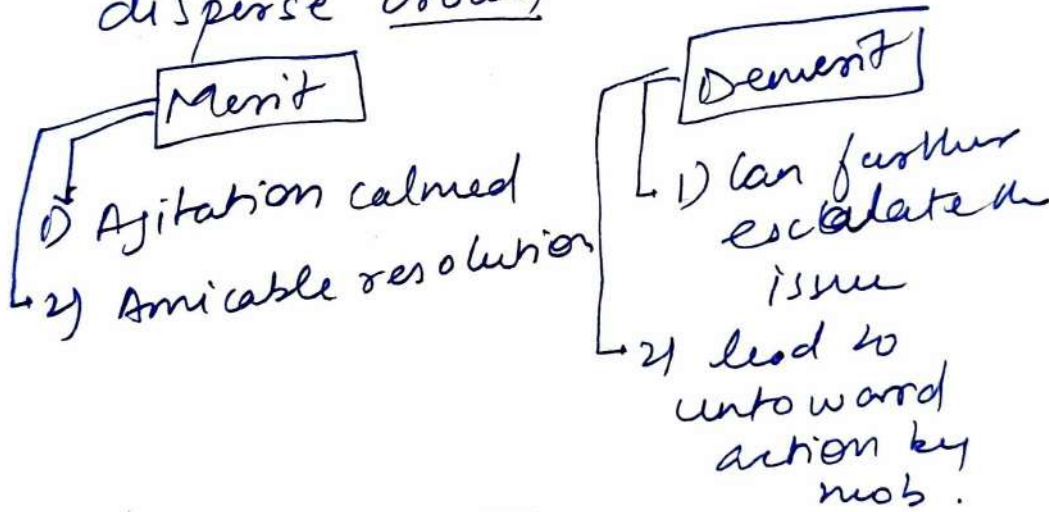 disperse
Merit
1) Agitation calmed
2) Amicable resolution
Demerit
1) Can further
escalate the
issue
2) lead to
untoward
action by
mob.